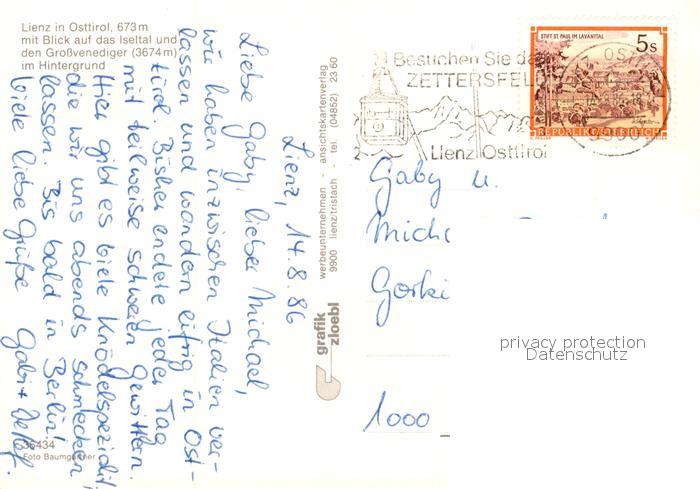 Lienz in Osttirol, 673m
mit Blick auf das Iseltal und
den Großvenediger (3674m)
im Hintergrund
Lienz, 14.8.86
Liebe Gaby, lieber Michael,
wir haben inzwischen Italien ver-
lassen und wandern eifrig in Ost-
tirol. Bisher endete jeder Tag
mit teilweise schweren Gewittern.
Hier gibt es viele Knödelspezialit.
die wir uns abends schmecken
lassen. Bis bald in Berlin!
Viele liebe Grüße Gabi +
35434
Foto Baumgartner
grafik
zloebl
werbeunternehmen - ansichtskartenverlag
9900 lienz/tristach - tel. (04852) 23 60
Besuchen Sie da
ZETTERSFEL
Lienz Osttirol
STIFT ST. PAUL IM LAVANTTAL
5 S
REPUBLIK ÖSTERREICH
Gaby u.
Mich
Gorki
1000
privacy protection
Datenschutz